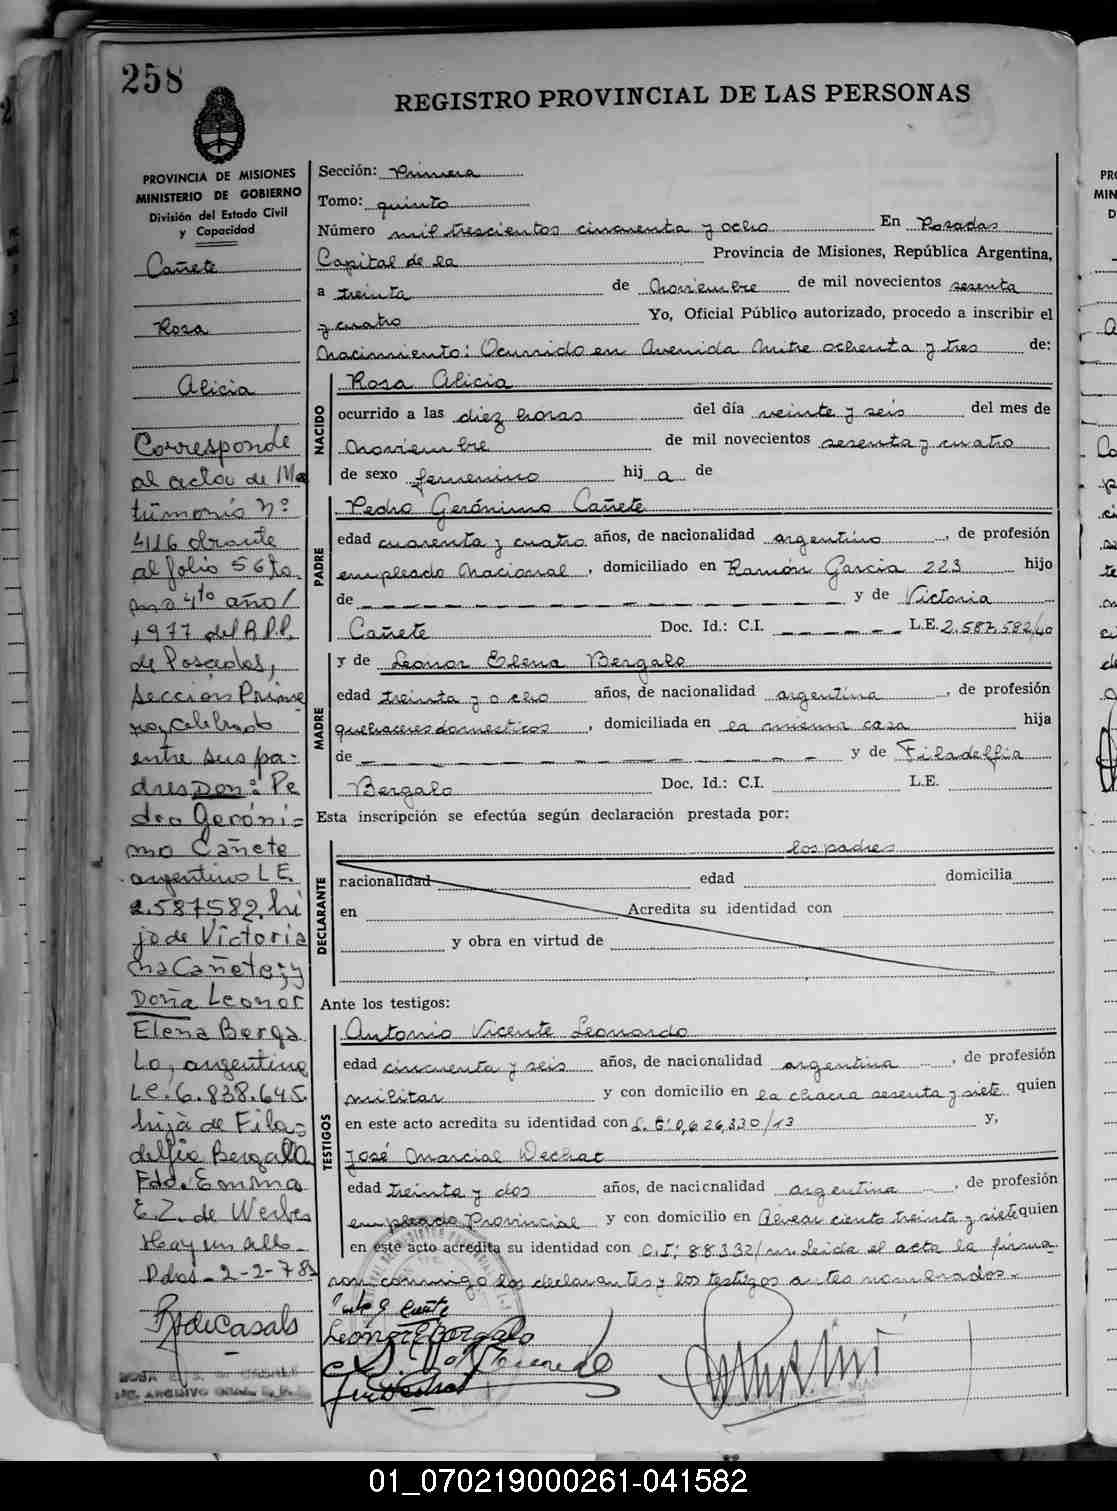 258
REGISTRO PROVINCIAL DE LAS PERSONAS
PROVINCIA DE MISIONES
MINISTERIO DE GOBIERNO
División del Estado Civil
y Capacidad
Cañete
Rosa
Alicia
Corresponde
al acta de Ma
trimonio Nº
416 obrante
al folio 56 to
mo 4to año/
1977 del R.P.P.
de Posadas,
Sección Prime
ra, celebrado
entre sus pa-
dres Don: Pe
dro Geróni-
mo Cañete
argentino L E
2.587582, hi
jo de Victoria
na Cañete; y
Doña Leonor
Elena Berga
lo, argentina
LC. 6.838.645
hija de Fila-
delfia Bergalo
Fdo. Emma
E. Z. de Werbes
Hay un sello
Pdas - 2-2-78
RdeCasals
Sección: Primera
Tomo: quinto
Número mil trescientos cincuenta y ocho En Posadas
Capital de la Provincia de Misiones, República Argentina,
a treinta de Noviembre de mil novecientos sesenta
y cuatro Yo, Oficial Público autorizado, procedo a inscribir el
Nacimiento: Ocurrido en Avenida Mitre ochenta y tres de:
NACIDO
Rosa Alicia
ocurrido a las diez horas del día veinte y seis del mes de
Noviembre de mil novecientos sesenta y cuatro
de sexo femenino hij a de
PADRE
Pedro Gerónimo Cañete
edad cuarenta y cuatro años, de nacionalidad argentino, de profesión
empleado Nacional, domiciliado en Ramón García 223 hijo
de y de Victoria
Cañete Doc. Id.: C.I. L.E. 2.587.582/40
MADRE
y de Leonor Elena Bergalo
edad treinta y ocho años, de nacionalidad argentina, de profesión
quehaceres domesticos, domiciliada en la misma casa hija
de y de Filadelfia
Bergalo Doc. Id.: C.I. L.E.
Esta inscripción se efectúa según declaración prestada por:
DECLARANTE
los padres
nacionalidad edad domicilia
en Acredita su identidad con
y obra en virtud de
Ante los testigos:
TESTIGOS
Antonio Vicente Leonardo
edad cincuenta y seis años, de nacionalidad argentina, de profesión
militar y con domicilio en la chacra sesenta y siete quien
en este acto acredita su identidad con L.E: 0,626,330/13 y,
José Marcial Wechat
edad treinta y dos años, de nacionalidad argentina, de profesión
empleado Provincial y con domicilio en Alvear ciento treinta y siete quien
en este acto acredita su identidad con C.I; 88332/ Leida el acta la firma
ron conmigo los declarantes y los testigos antes nombrados.-
Leonor E Bergalo
01_070219000261-041582